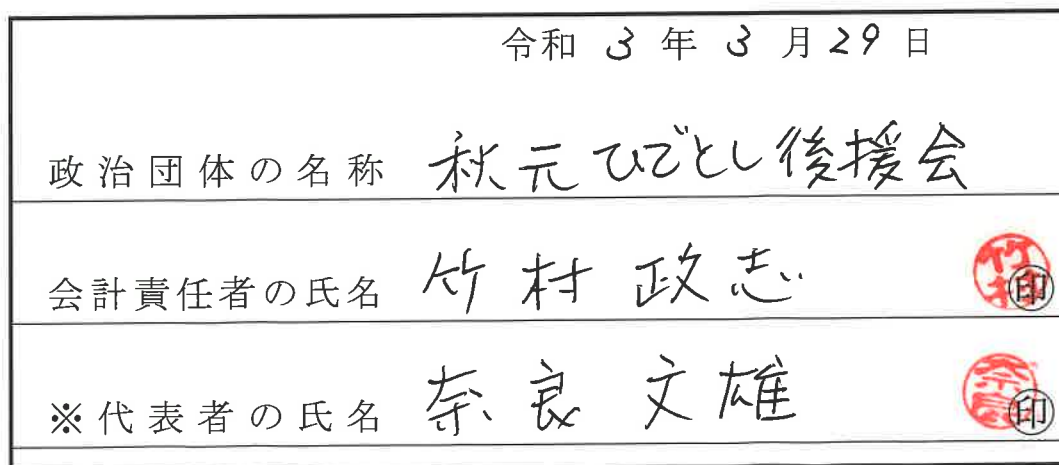 令和 3 年 3 月 29 日
政治団体の名称 秋元ひでとし後援会
会計責任者の氏名 竹村 政志 竹村 印
※代表者の氏名 奈良 文雄 奈良 印